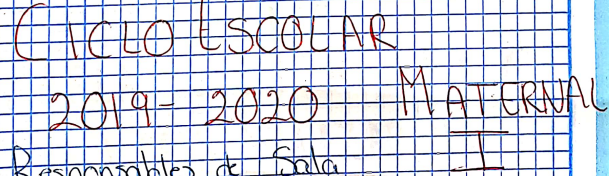 CICLO ESCOLAR
2019-2020 MATERNAL
I
Responsables de Sala